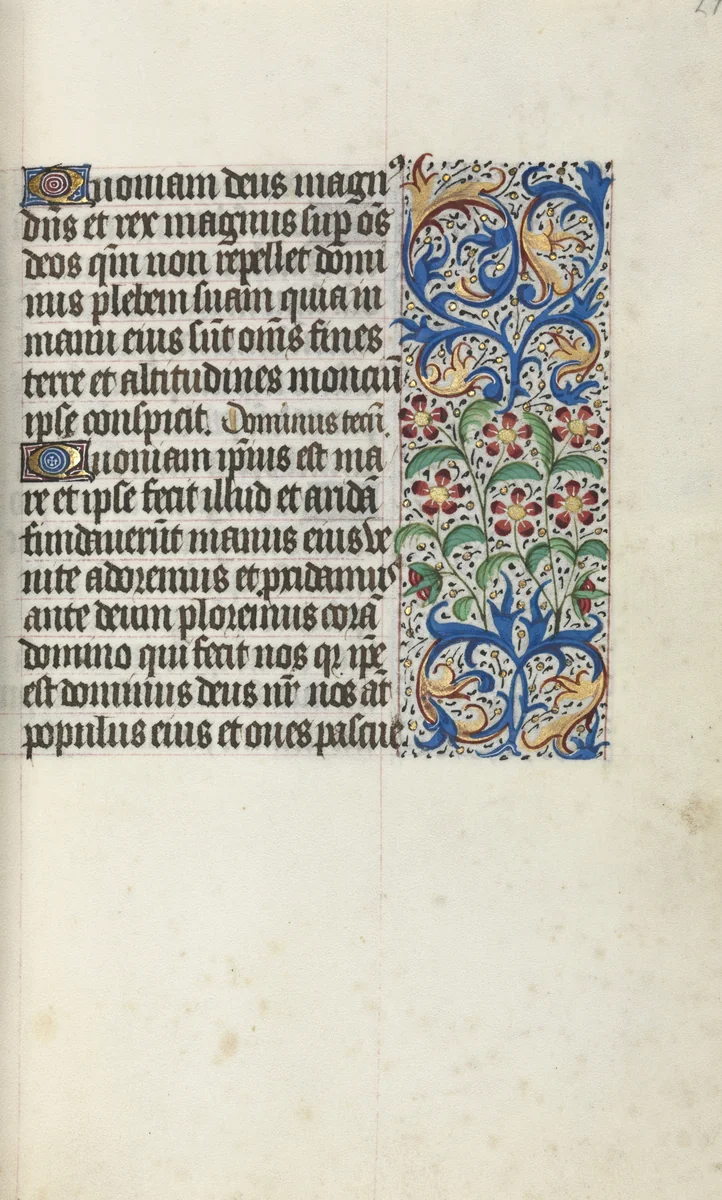 Quoniam deus magn⁹
dñs et rex magnus sup oẽs
deos qm̃ non repellet domi
nus plebem suam quia in
manu eius sũt oñs fines
terre et altitudines monciũ
ipse conspicit. Dominus tecũ.
Quoniam ip̃ius est ma
re et ipse fecit illud et aridã
fundauerũt manus eius ve
nite adoremus et ꝓcidamus
ante deum ploremus corã
domino qui fecit nos qꝛ ip̃e
est dominus deus nr̃ nos aũt
populus eius et oues pascue.